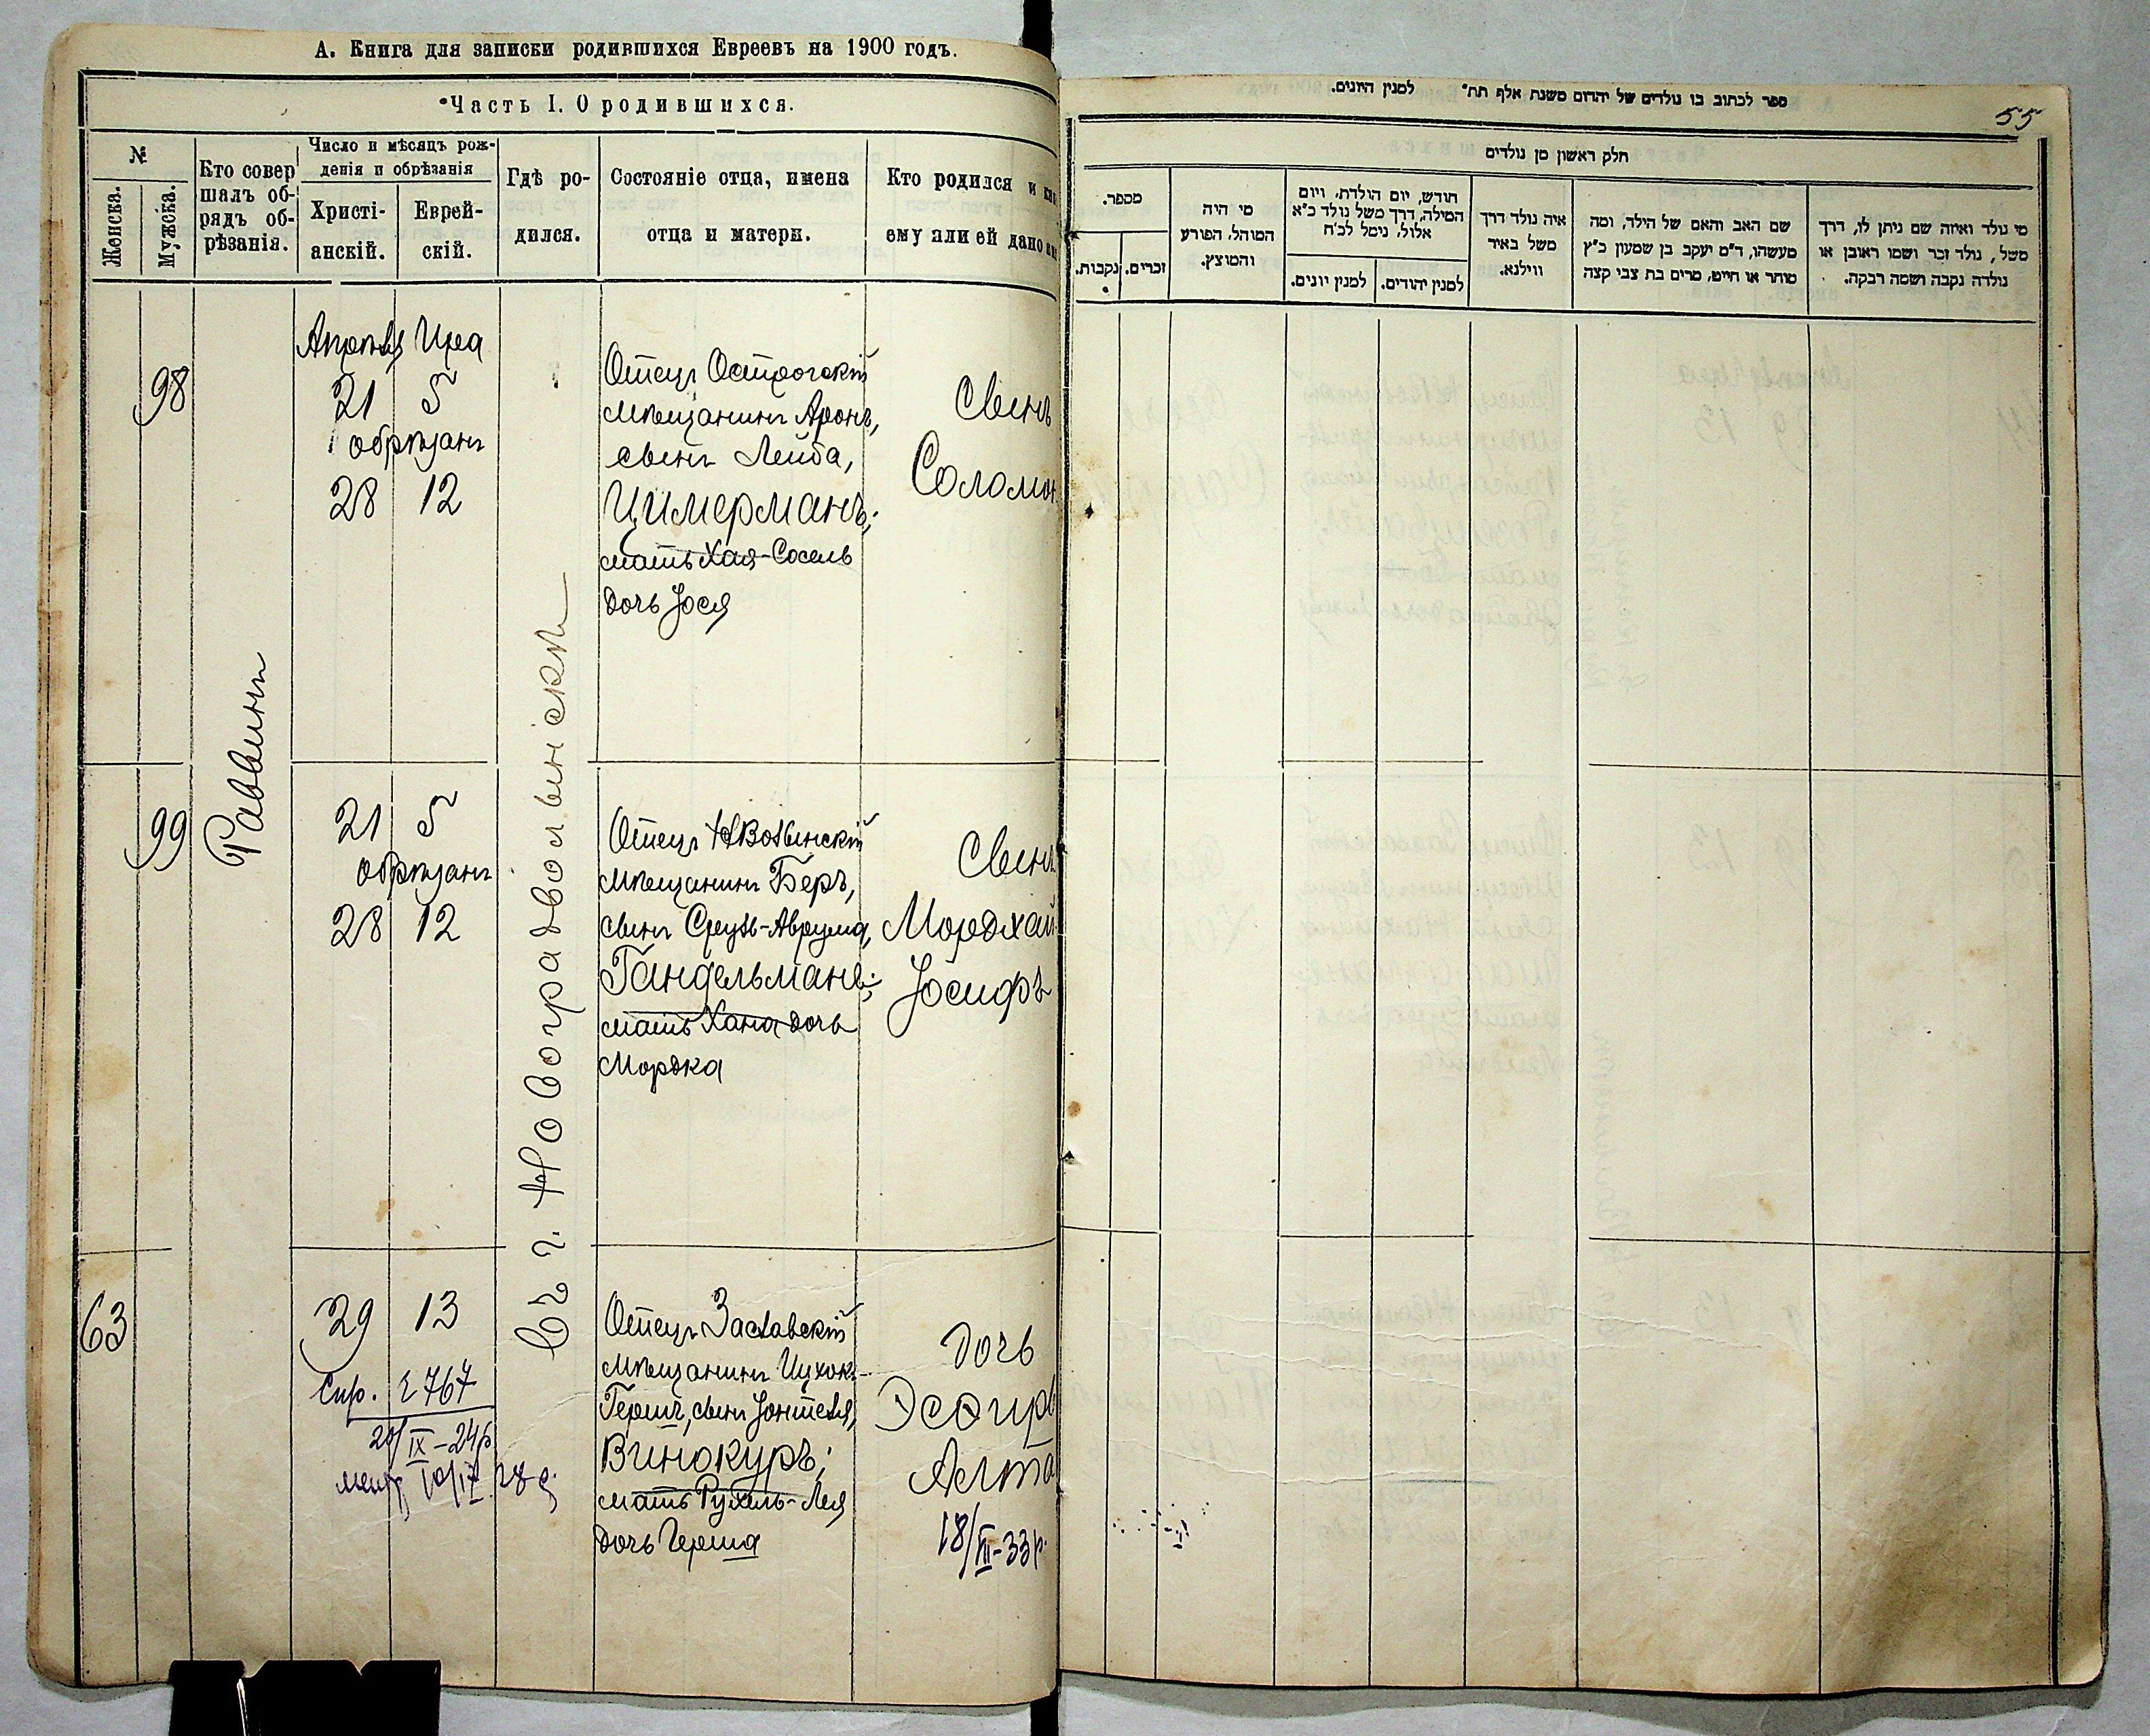 А. Книга для записки родившихся Евреевъ на 1900 годъ.
Часть I. О родившихся.
№
Женска.
Мужска.
Кто совер
шалъ об-
рядъ об-
рѣзанія.
Число и мѣсяцъ рож-
денія и обрѣзанія
Христі-
анскій.
Еврей-
скій.
Гдѣ ро-
дился.
Состояніе отца, имена
отца и матери.
Кто родился и
ему или ей дано
Раввинъ
Въ г. Новоградволынскѣ
98
Апрѣля Ира
21 5
обрѣзанъ
28 12
Отецъ Острогскій
мѣщанинъ Аронъ,
сынъ Лейба,
Цимерманъ;
мать Хая-Сосель
дочь Іося
Сынъ
Соломон
99
21 5
обрѣзанъ
28 12
Отецъ НВолынскій
мѣщанинъ Беръ,
сынъ Сруль-Аврума,
Гандельманъ;
мать Хана дочь
Мордка
Сынъ
Мордхай
Іосифъ
63
29 13
Отецъ Заславскій
мѣщанинъ Ицхок-
Гершъ, сынъ Іонтеля,
Винокуръ;
мать Рухель-Лея
дочь Герша
дочь
Эсѳирь
Алта
18/XII-33р.
Спр. 2767
20/IX-24р
ספר לכתוב בו נולדים של יהודים משנת אלף תת״ למנין היונים.
55
חלק ראשון מן נולדים
מספר.
נקבות.
זכרים.
מי היה
המוהל, הפורע
והמוצץ.
חודש, יום הולדת, ויום
המילה, דרך משל נולד כ״א
אלול, נימל לכ״ח
למנין יונים.
למנין יהודים.
איה נולד דרך
משל באיר
ווילנא.
שם האב והאם של הילד, ומה
מעשהו, ד״מ יעקב בן שמעון כ״ץ
סוחר או חייט, מרים בת צבי קצה
מי נולד ואיזה שם ניתן לו, דרך
משל, נולד זכר ושמו ראובן או
נולדה נקבה ושמה רבקה.